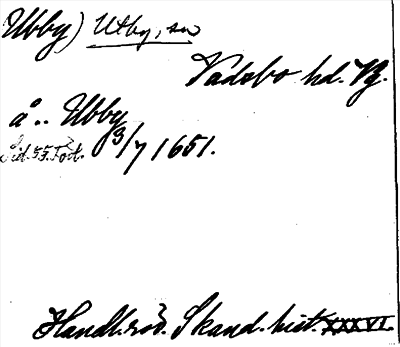 Ubby) Utby, sn
Vadsbo hd. Vg.
å.. Ubby
3/7 1651.
Sid. 55. Fort.
Handl. rör. Skand. hist. XXXVI.